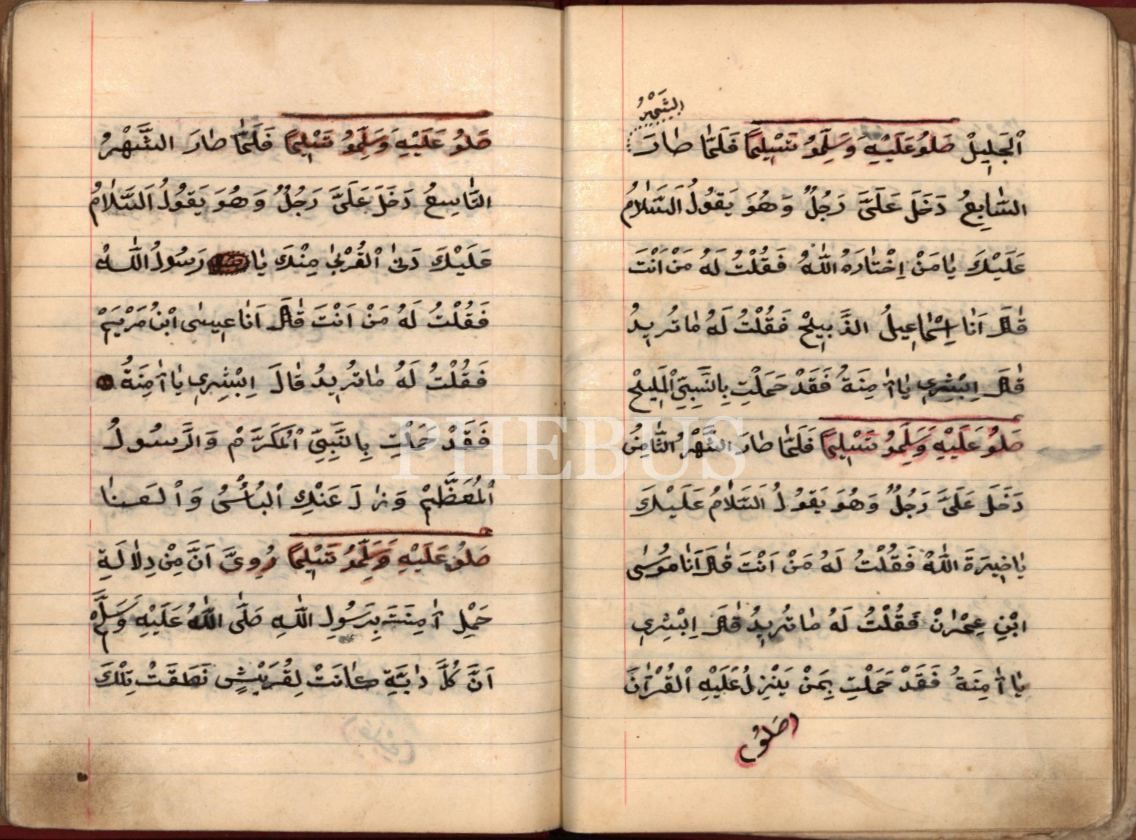 الشَّهْرُ
الْجَلِيلْ صَلُو عَلَيْهِ وَسَلِّمُو تَسْلِيمًا فَلَمَّا صَارَ
السَّابِعُ دَخَلَ عَلَىَّ رَجُلٌ وَهُوَ يَقُولُ اَلسَّلَامُ
عَلَيْكَ يَا مَنْ اِخْتَارَهُ اللّٰهُ فَقُلْتُ لَهُ مَنْ اَنْتَ
قَالَ اَنَا اِسْمَاعِيلُ الذَّبِيحْ فَقُلْتُ لَهُ مَا تُرِيدُ
قَالَ اِبْشِرِي يَا آمِنَةُ فَقَدْ حَمَلْتِ بِالنَّبِيِّ الْمَلِيحْ
صَلُو عَلَيْهِ وَسَلِّمُو تَسْلِيمًا فَلَمَّا صَارَ الشَّهْرُ الثَّامِنُ
دَخَلَ عَلَىَّ رَجُلٌ وَهُوَ يَقُولُ اَلسَّلَامُ عَلَيْكَ
يَا خِيرَةَ اللّٰهْ فَقُلْتُ لَهُ مَنْ اَنْتَ قَالَ اَنَا مُوسٰى
ابْنِ عِمْرَانْ فَقُلْتُ لَهُ مَا تُرِيدُ قَالَ اِبْشِرِي
يَا آمِنَةُ فَقَدْ حَمَلْتِ بِمَنْ يَنْزِلُ عَلَيْهِ الْقُرْآنَ
صَلُو
صَلُو عَلَيْهِ وَسَلِّمُو تَسْلِيمًا فَلَمَّا صَارَ الشَّهْرُ
التَّاسِعُ دَخَلَ عَلَىَّ رَجُلٌ وَهُوَ يَقُولُ اَلسَّلَامُ
عَلَيْكَ دَنٰى الْقُرْبٰى مِنْكَ يَا رَسُولُ اللّٰهْ
فَقُلْتُ لَهُ مَنْ اَنْتَ قَالَ اَنَا عِيسٰى ابْنُ مَرْيَمْ
فَقُلْتُ لَهُ مَا تُرِيدُ قَالَ اِبْشِرِي يَا آمِنَةُ
فَقَدْ حَمَلْتِ بِالنَّبِيِّ الْمُكَرَّمْ وَالرَّسُولُ
الْمُعَظَّمْ وَزَالَ عَنْكِ الْبُأْسُ وَالْعَنَا
صَلُو عَلَيْهِ وَسَلِّمُو تَسْلِيمًا رُوِيَ اَنَّ مِنْ دِلَالَةِ
حَمْلِ آمِنَتَ بِرَسُولِ اللّٰهِ صَلَّى اللّٰهُ عَلَيْهِ وَسَلَّمْ
اَنَّ كُلَّ دَابَّةٍ كَانَتْ لِقُرَيْشٍ نَطَقَتْ تِلْكَ
PHEBUS